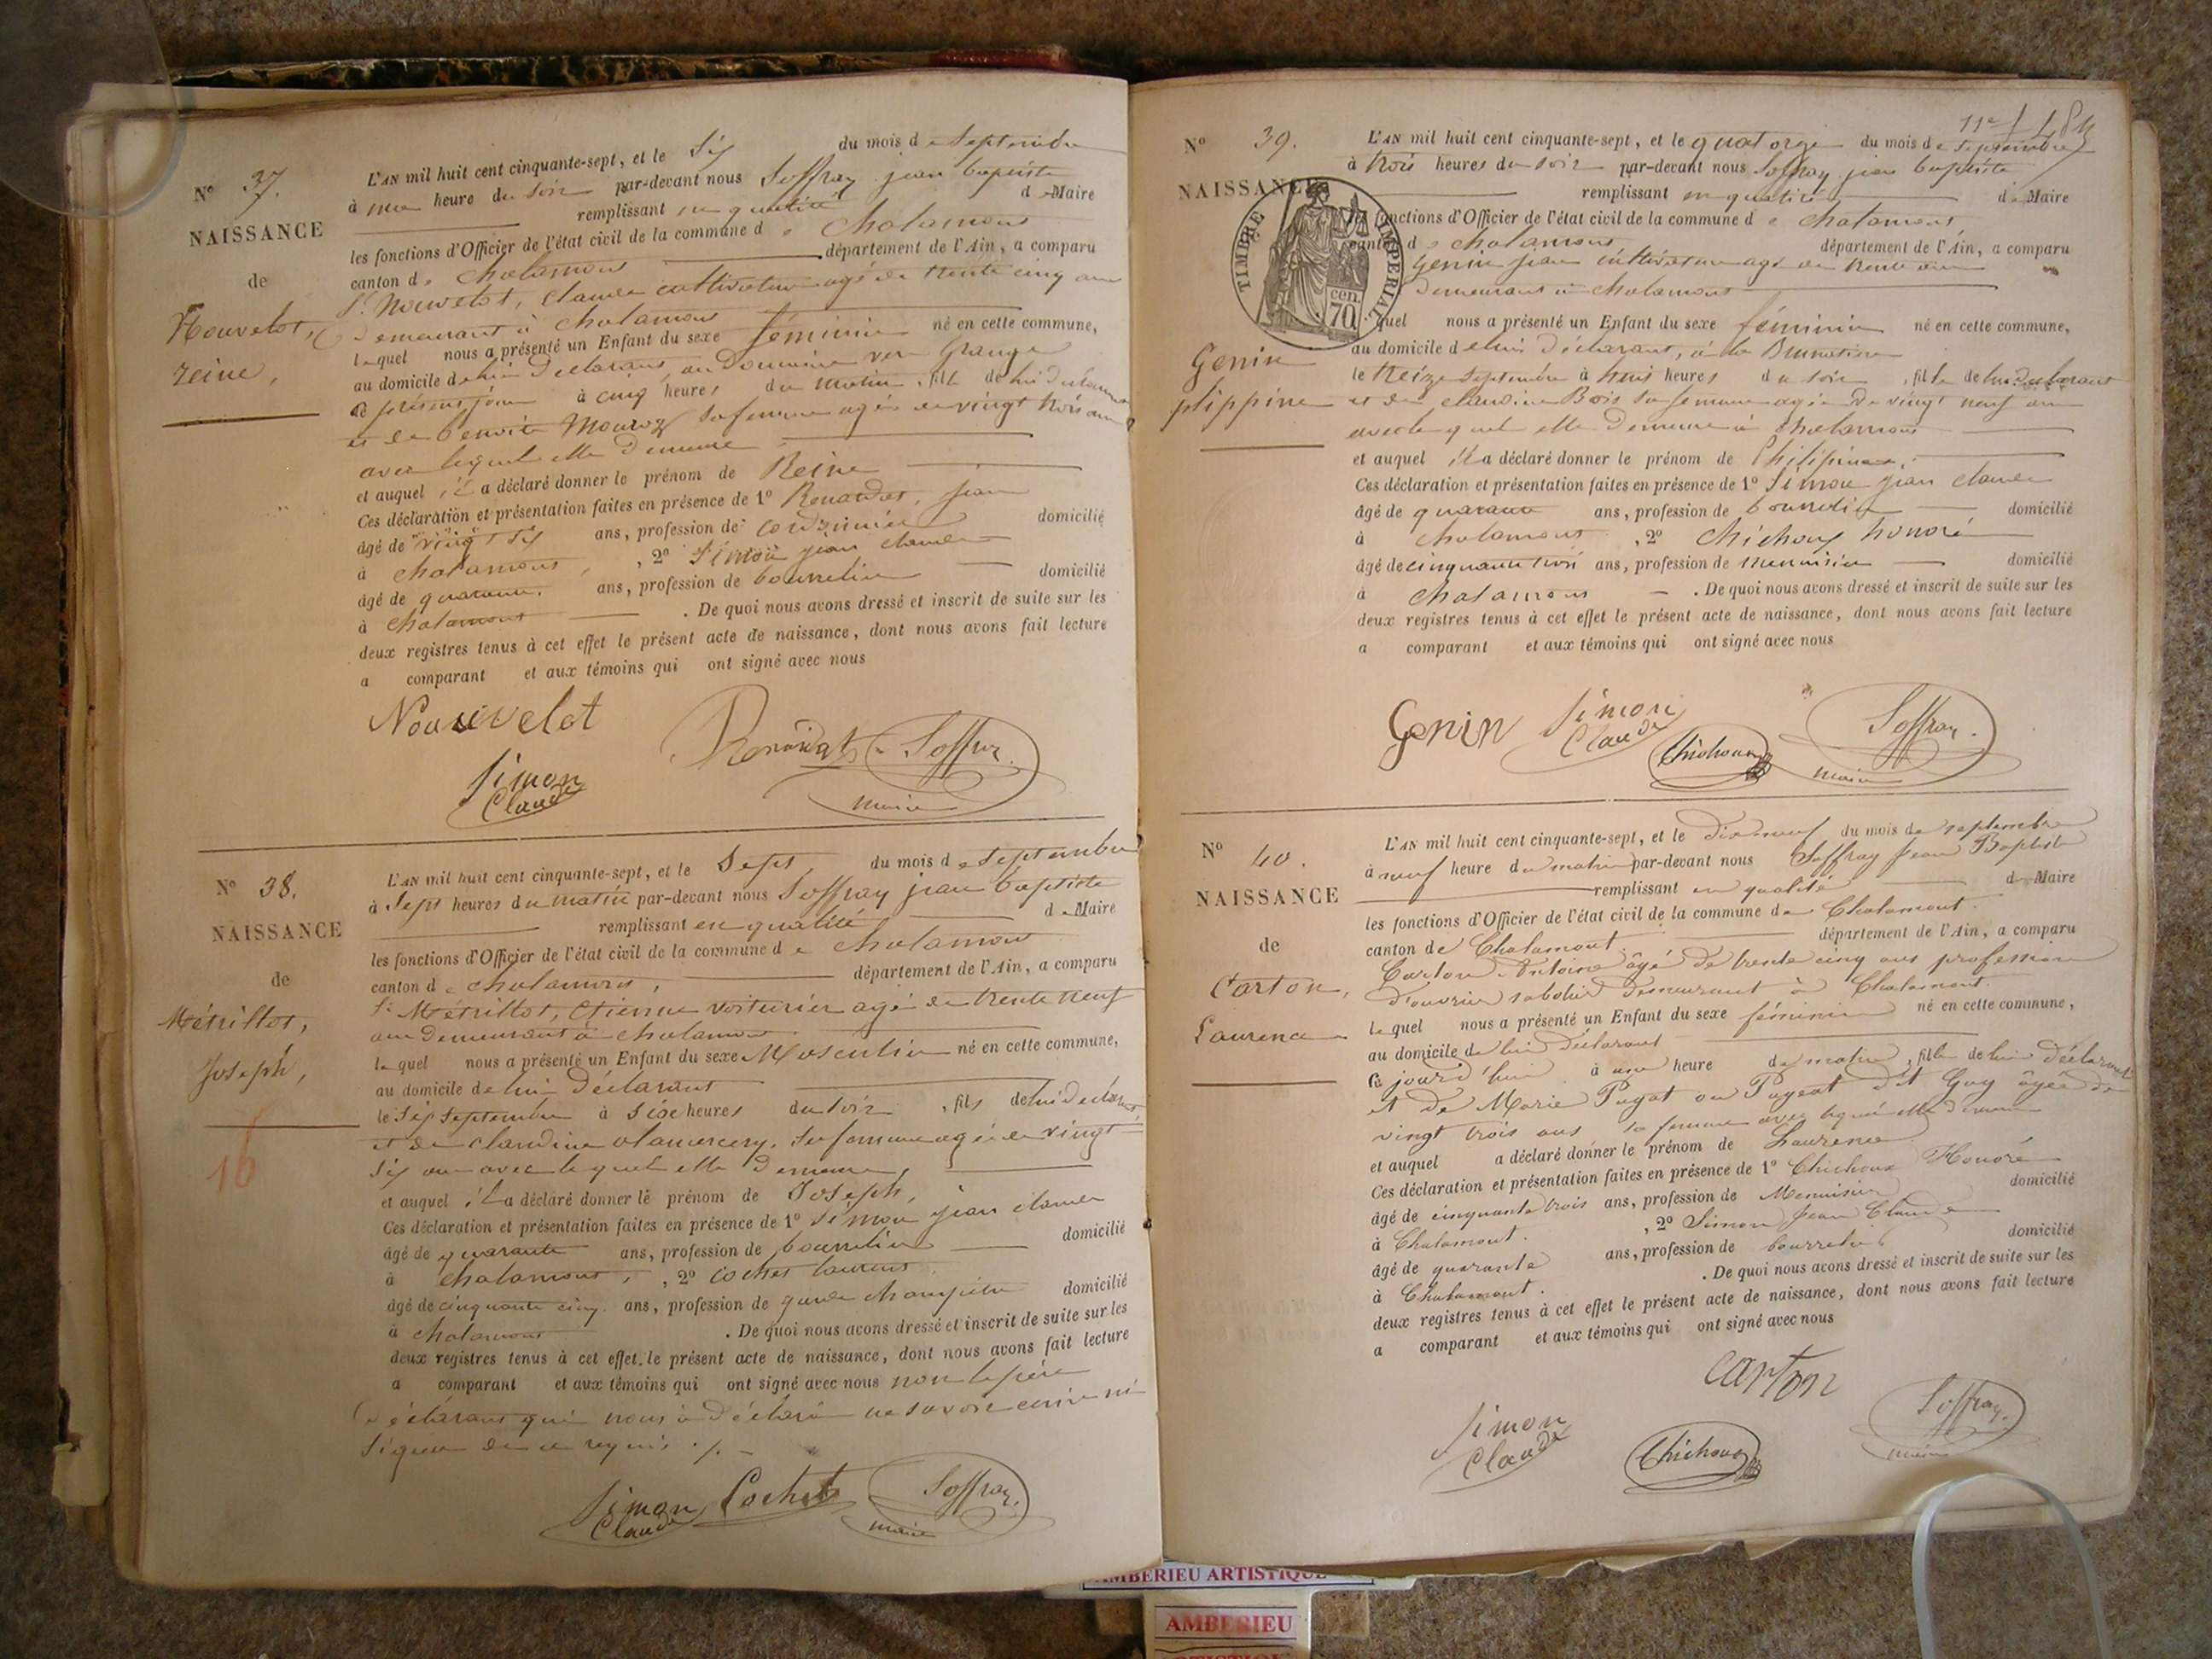 N° 37.
NAISSANCE
de
Nouvelot,
reine,
L'AN mil huit cent cinquante-sept, et le six du mois de septembre
à une heure du soir par-devant nous Soffray jean baptiste
remplissant en qualité de Maire
les fonctions d'Officier de l'état civil de la commune de chalamont
canton de chalamont département de l'Ain, a comparu
Sr Nouvelot, claude cultivateur agé de trente cinq ans
demeurant à chalamont
lequel nous a présenté un Enfant du sexe féminin né en cette commune,
au domicile de lui déclarant, au Domaine vers Grange
ce présent jour à cinq heures du matin, fille de lui déclarant
et de benoite sa femme agée de vingt trois ans
avec lequel elle demeure
et auquel il a déclaré donner le prénom de Reine
Ces déclaration et présentation faites en présence de 1° Renaudat, jean
âgé de vingt six ans, profession de cordonnier domicilié
à chalamont, 2° Simon jean claude
âgé de quarante ans, profession de bourrelier domicilié
à chalamont. De quoi nous avons dressé et inscrit de suite sur les
deux registres tenus à cet effet le présent acte de naissance, dont nous avons fait lecture
a comparant et aux témoins qui ont signé avec nous
Nouvelot
Simon Claude
Soffray
maire
N° 38.
NAISSANCE
de
Métrillot,
Joseph,
16
L'AN mil huit cent cinquante-sept, et le Sept du mois de septembre
à Sept heures du matin par-devant nous Soffray jean baptiste
remplissant en qualité de Maire
les fonctions d'Officier de l'état civil de la commune de chalamont
canton de chalamont, département de l'Ain, a comparu
Sr Métrillot, Etienne voiturier agé de trente neuf
ans demeurant à chalamont
lequel nous a présenté un Enfant du sexe Masculin né en cette commune,
au domicile de lui déclarant
le six septembre à six heures du soir, fils de lui déclarant
et de claudine sa femme agée de vingt
six ans avec lequel elle demeure,
et auquel il a déclaré donner le prénom de Joseph,
Ces déclaration et présentation faites en présence de 1° Simon jean claude
âgé de quarante ans, profession de bourrelier domicilié
à chalamont, 2° cochet laurent
âgé de cinquante cinq ans, profession de garde champêtre domicilié
à chalamont. De quoi nous avons dressé et inscrit de suite sur les
deux registres tenus à cet effet le présent acte de naissance, dont nous avons fait lecture
a comparant et aux témoins qui ont signé avec nous non le père
déclarant qui nous à déclaré ne savoir écrire ni
signer de ce requis ./.
Simon Claude
Cochet
Soffray
maire
N° 39.
NAISSANCE
TIMBRE IMPERIAL
70 cen.
Genin
plippine
L'AN mil huit cent cinquante-sept, et le quatorze du mois de septembre
à trois heures du soir par-devant nous Soffray jean baptiste
remplissant en qualité de Maire
fonctions d'Officier de l'état civil de la commune de chalamont
canton de chalamont département de l'Ain, a comparu
Genin jean cultivateur agé de trente ans
demeurant à chalamont
quel nous a présenté un Enfant du sexe féminin né en cette commune,
au domicile de lui déclarant, à la
le treize septembre à huit heures du soir, fille de lui déclarant
et de claudine Bois sa femme agée de vingt neuf ans
avec le quel elle demeure à chalamont
et auquel il a déclaré donner le prénom de Philipine,
Ces déclaration et présentation faites en présence de 1° Simon jean claude
âgé de quarante ans, profession de bourrelier domicilié
à chalamont, 2° Chichoux honoré
âgé de cinquante trois ans, profession de menuisier domicilié
à chalamont. De quoi nous avons dressé et inscrit de suite sur les
deux registres tenus à cet effet le présent acte de naissance, dont nous avons fait lecture
a comparant et aux témoins qui ont signé avec nous
Genin
Simon Claude
Chichoux
Soffray
maire
N° 40.
NAISSANCE
de
Carton,
Laurence
L'AN mil huit cent cinquante-sept, et le dix neuf du mois de septembre
à neuf heure du matin par-devant nous Soffray Jean Baptiste
remplissant en qualité de Maire
les fonctions d'Officier de l'état civil de la commune de Chalamont.
canton de Chalamont département de l'Ain, a comparu
Carton Antoine âgé de trente cinq ans profession
d'ouvrier sabotier demeurant à Chalamont.
lequel nous a présenté un Enfant du sexe féminin né en cette commune,
au domicile de lui déclarant
ce jourd'hui à une heure du matin, fille de lui déclarant
et de Marie Pugat ou Pugeat dit Guy âgée de
vingt trois ans sa femme avec lequel elle demeure
et auquel a déclaré donner le prénom de Laurence
Ces déclaration et présentation faites en présence de 1° Chichoux Honoré
âgé de cinquante trois ans, profession de Menuisier domicilié
à Chalamont. , 2° Simon Jean Claude
âgé de quarante ans, profession de bourrelier domicilié
à Chalamont. De quoi nous avons dressé et inscrit de suite sur les
deux registres tenus à cet effet le présent acte de naissance, dont nous avons fait lecture
a comparant et aux témoins qui ont signé avec nous
carton
Simon Claude
Chichoux
Soffray
maire
AMBERIEU ARTISTIQUE
AMBERIEU